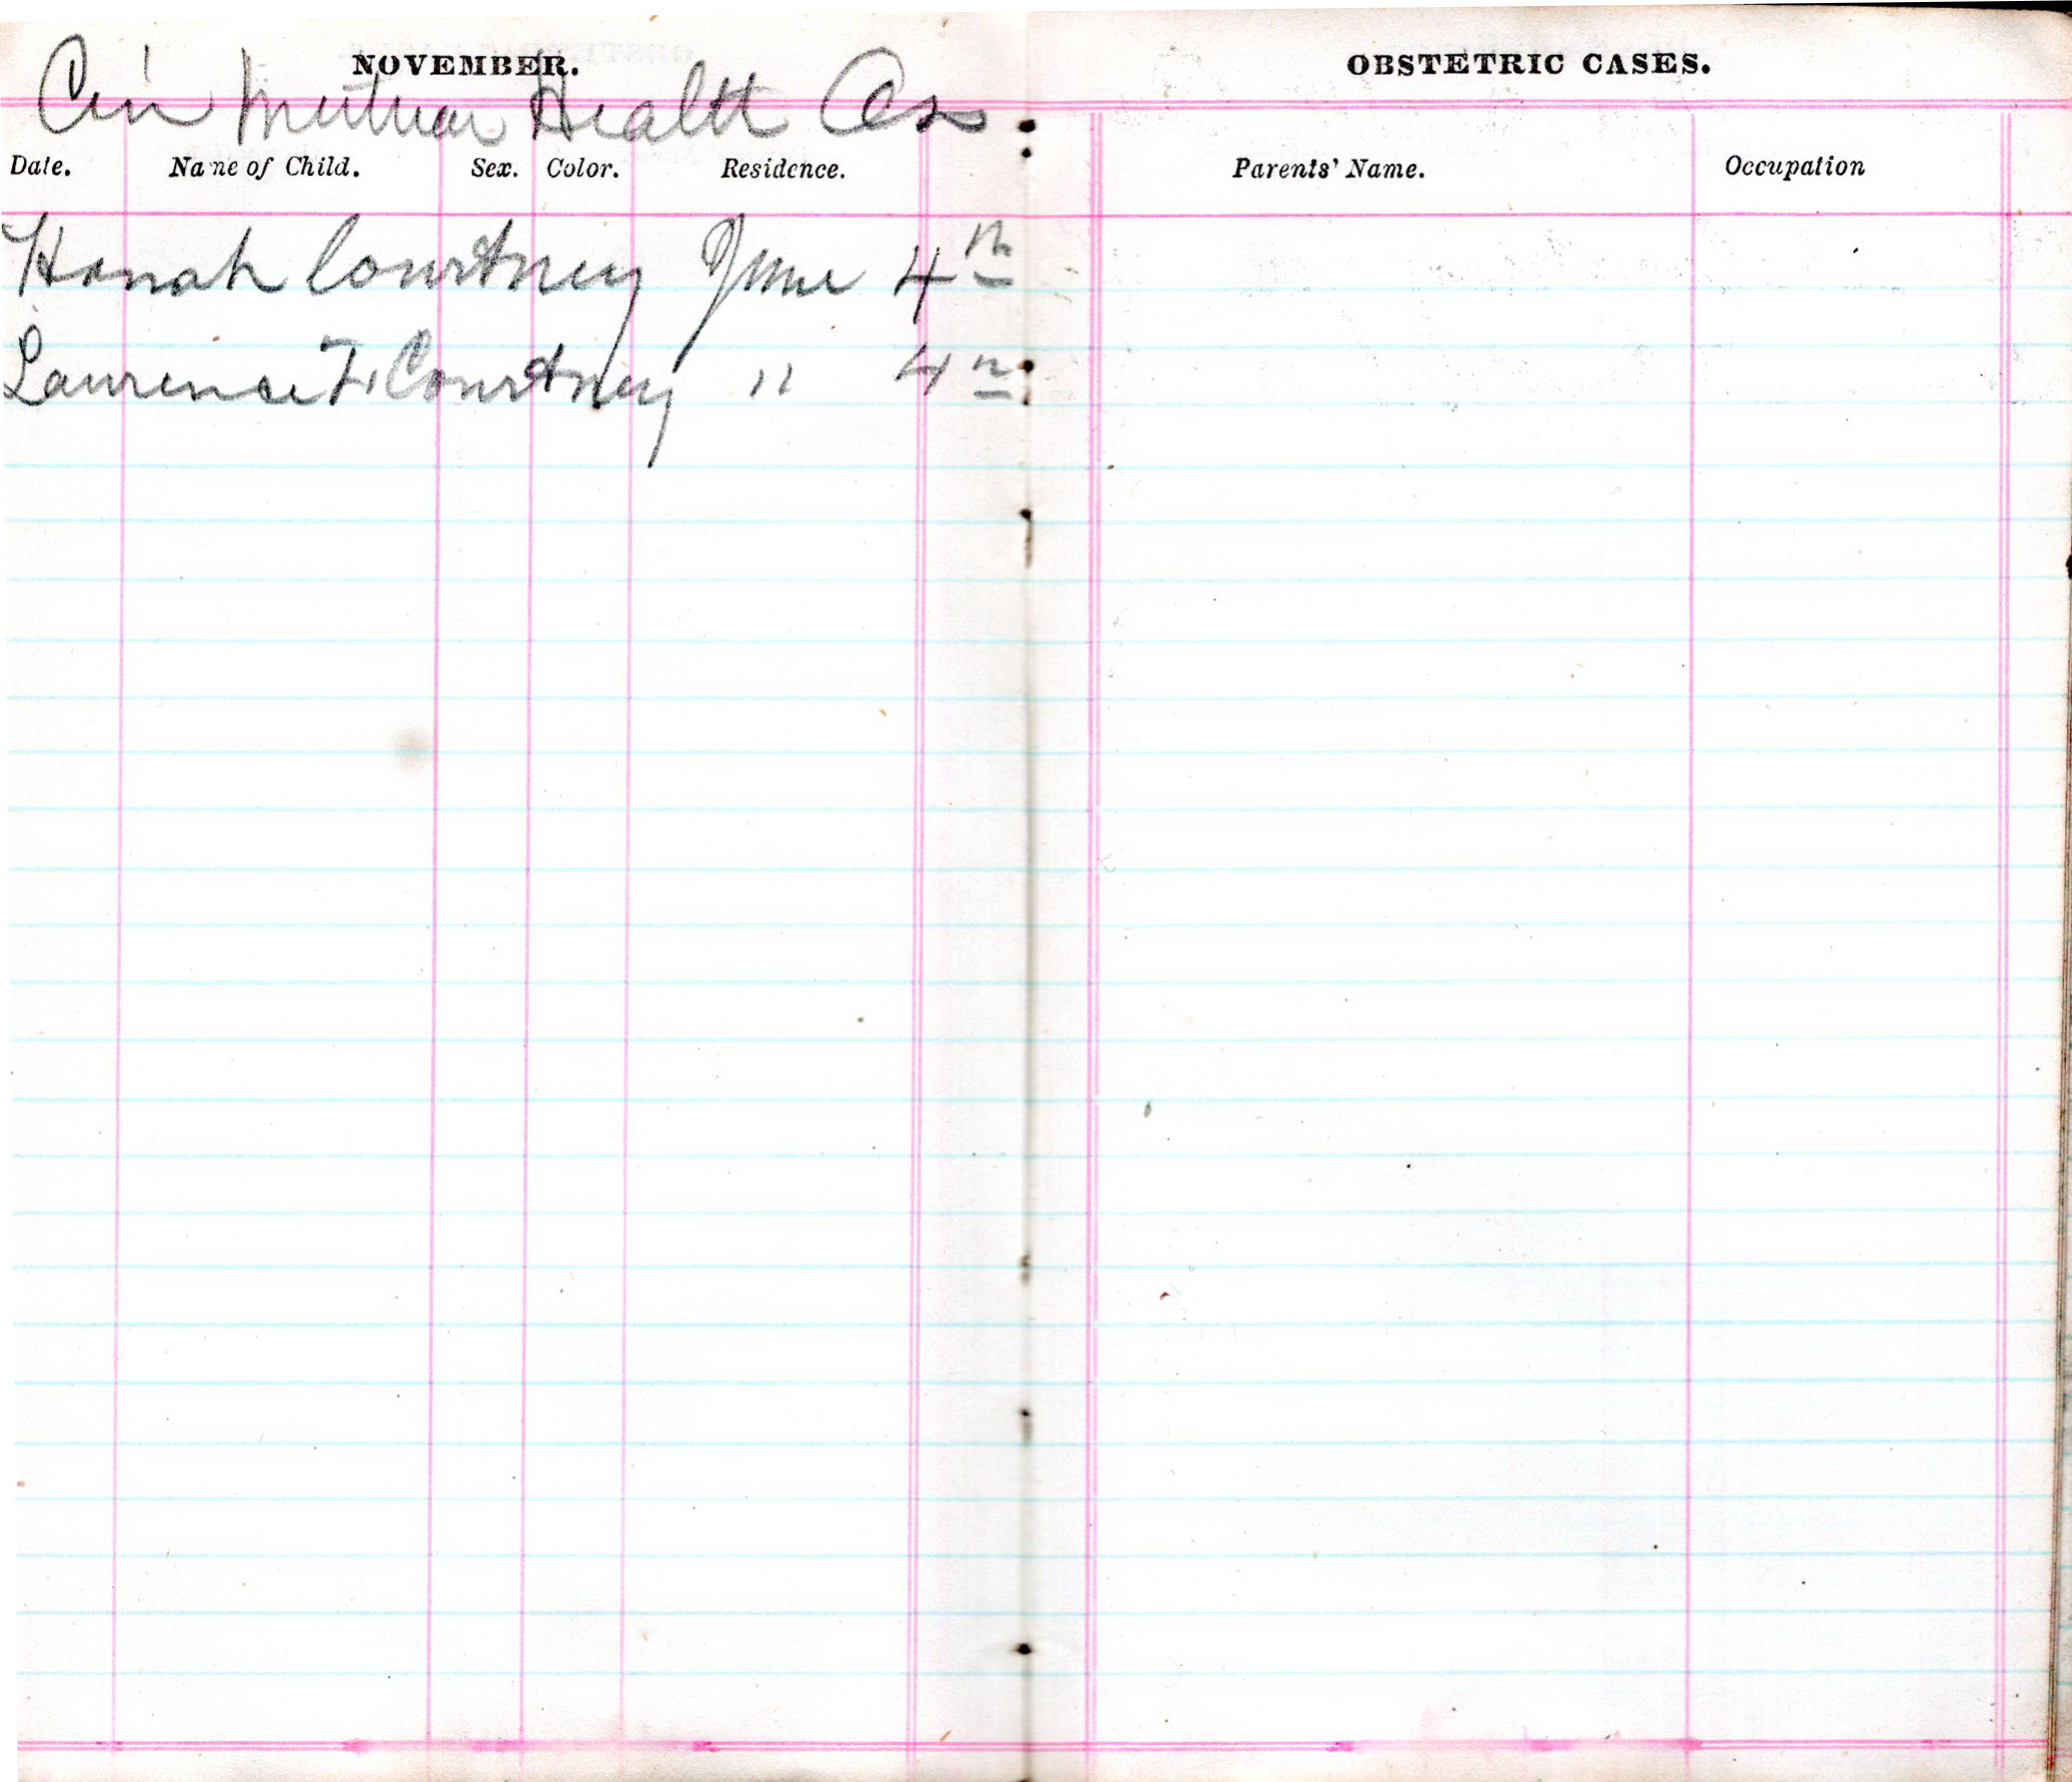 NOVEMBER.
Cin Mutual Health Ass
Date. Name of Child. Sex. Color. Residence.
Hanah Courtney June 4th
Laurence F. Courtney " 4th
OBSTETRIC CASES.
Parents' Name. Occupation